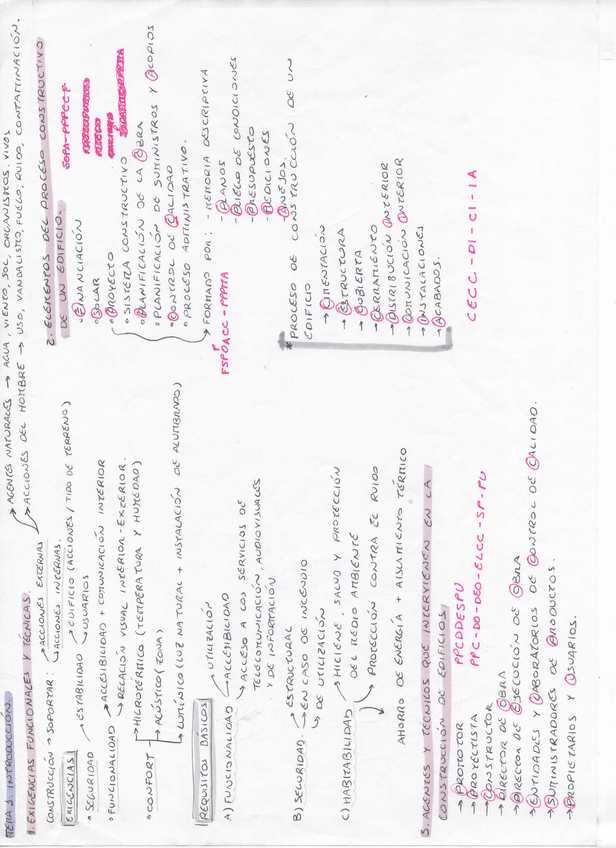 TEMA 1. INTRODUCCIÓN.
1. EXIGENCIAS FUNCIONALES Y TÉCNICAS.
CONSTRUCCIÓN → SOPORTAR: → ACCIONES EXTERNAS → AGENTES NATURALES → AGUA, VIENTO, SOL, ORGANISMOS VIVOS
→ ACCIONES DEL HOMBRE → USO, VANDALISMO, FUEGO, RUIDO, CONTAMINACIÓN.
→ ACCIONES INTERNAS.
EXIGENCIAS
• SEGURIDAD → ESTABILIDAD → EDIFICIO (ACCIONES / TIPO DE TERRENO)
→ USUARIOS
• FUNCIONALIDAD → ACCESIBILIDAD + COMUNICACIÓN INTERIOR
→ RELACIÓN VISUAL INTERIOR-EXTERIOR.
• CONFORT → HIGROTÉRMICO (TEMPERATURA Y HUMEDAD)
→ ACÚSTICO (ZONA)
→ LUMÍNICO (LUZ NATURAL + INSTALACIÓN DE ALUMBRADO)
REQUISITOS BÁSICOS
A) FUNCIONALIDAD → UTILIZACIÓN
→ ACCESIBILIDAD
→ ACCESO A LOS SERVICIOS DE
TELECOMUNICACIÓN, AUDIOVISUALES
Y DE INFORMACIÓN
B) SEGURIDAD. → ESTRUCTURAL
→ EN CASO DE INCENDIO
→ DE UTILIZACIÓN
C) HABITABILIDAD → HIGIENE, SALUD Y PROTECCIÓN
DEL MEDIO AMBIENTE
→ PROTECCIÓN CONTRA EL RUIDO
AHORRO DE ENERGÍA + AISLAMIENTO TÉRMICO
3. AGENTES Y TÉCNICOS QUE INTERVIENEN EN LA
CONSTRUCCIÓN DE EDIFICIOS
→ PROMOTOR
→ PROYECTISTA
→ CONSTRUCTOR
→ DIRECTOR DE OBRA
→ DIRECTOR DE EJECUCIÓN DE OBRA
→ ENTIDADES Y LABORATORIOS DE CONTROL DE CALIDAD.
→ SUMINISTRADORES DE PRODUCTOS.
→ PROPIETARIOS Y USUARIOS.
PPCDDESPU
PPC-DO-DEO-ELCC-SP-PU
2. ELEMENTOS DEL PROCESO CONSTRUCTIVO
DE UN EDIFICIO.
SOPA-PPPCCF
• FINANCIACIÓN
• SOLAR
• PROYECTO
• SISTEMA CONSTRUCTIVO
• PLANIFICACIÓN DE LA OBRA
• PLANIFICACIÓN DE SUMINISTROS Y ACOPIOS
• CONTROL DE CALIDAD
• PROCESO ADMINISTRATIVO.
→ FORMADO POR: - MEMORIA DESCRIPTIVA
- PLANOS
- PLIEGO DE CONDICIONES
- PRESUPUESTO
- MEDICIONES
- ANEJOS.
* PROCESO DE CONSTRUCCIÓN DE UN
EDIFICIO
→ CIMENTACIÓN
→ ESTRUCTURA
→ CUBIERTA
→ CERRAMIENTO
→ DISTRIBUCIÓN INTERIOR
→ COMUNICACIÓN INTERIOR
→ INSTALACIONES
→ ACABADOS.
CECC-DI-CI-IA